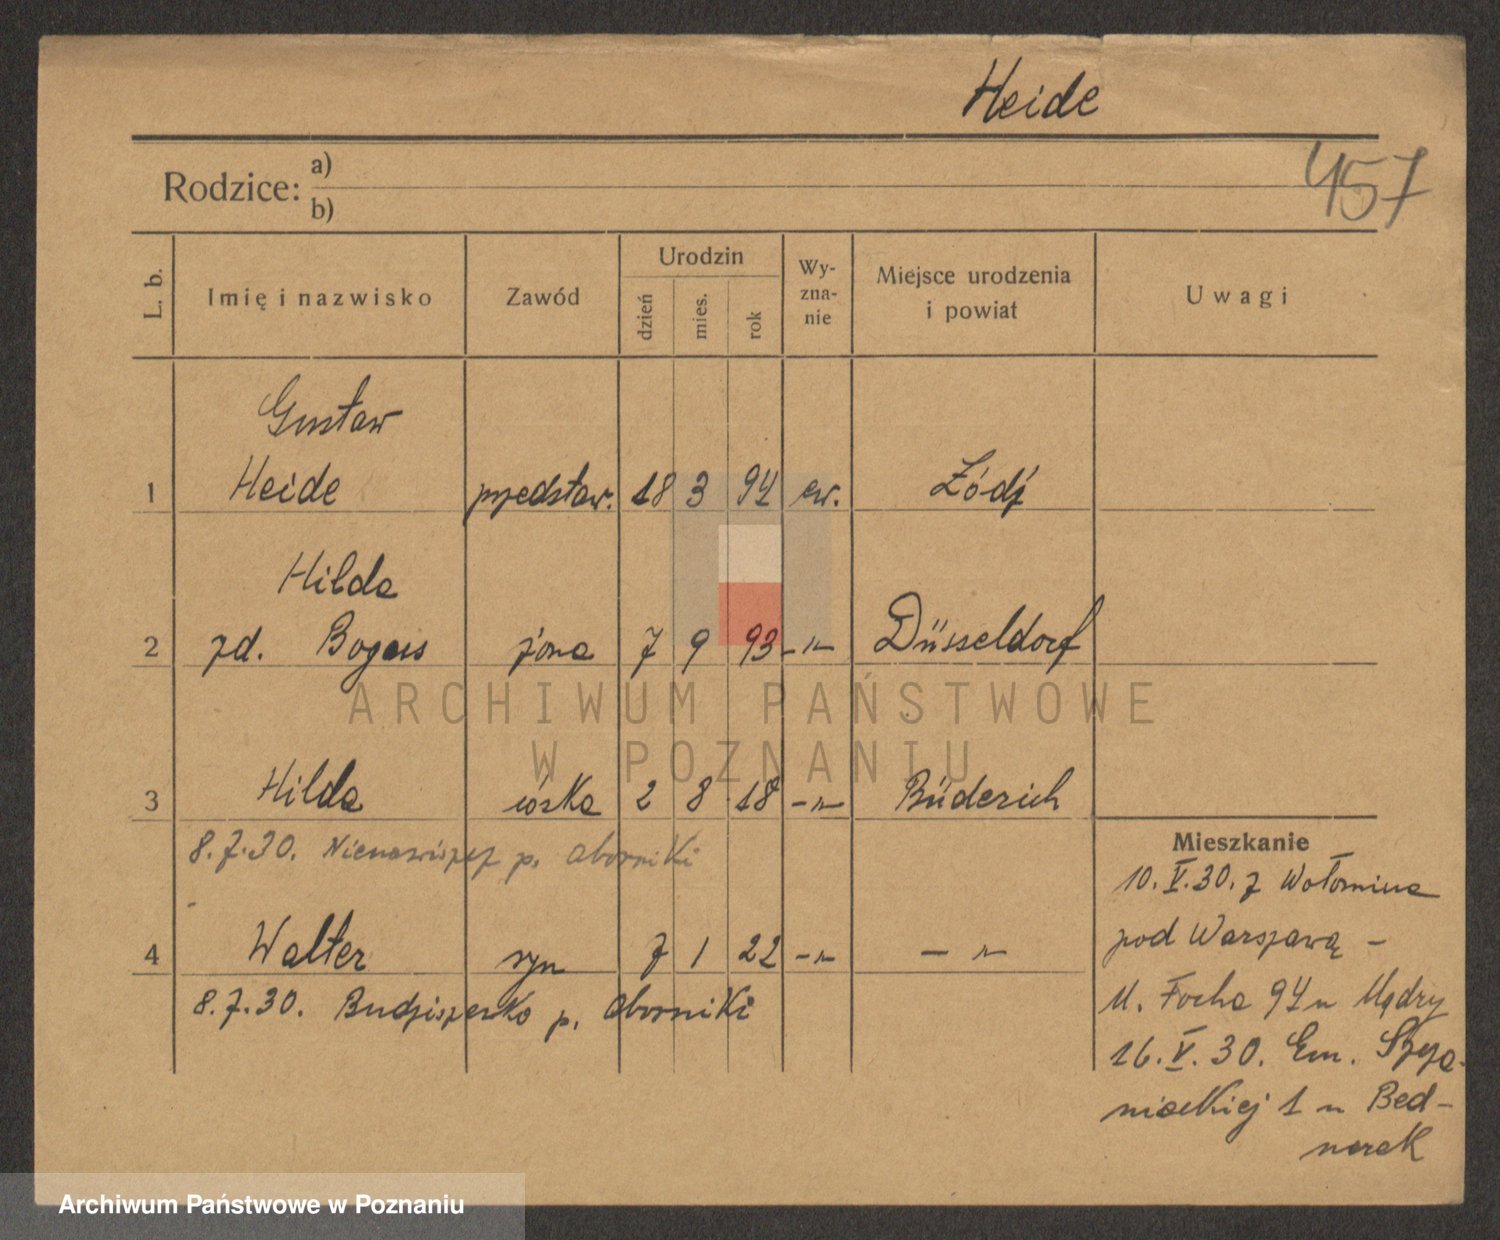 Heide
457
Rodzice: a)
b)
L. b. Imię i nazwisko Zawód Urodzin dzień mies. rok Wy-zna-nie Miejsce urodzenia i powiat Uwagi
Gustaw
1 Heide przedstaw. 18 3 94 ew. Łódź
Hilda
2 zd. żona 7 9 93 -"- Düsseldorf
3 Hilda córka 2 8 18 -"- Büderich
8.7.30. p. Oborniki
4 Walter syn 7 1 22 -"- - "-
8.7.30. Budziszewko p. Oborniki
Mieszkanie
10.V.30. z Wołomina
pod Warszawą -
M. Focha 94 u Mądry
16.V.30. Em. Szcza-
nieckiej 1 u Bed-
narek
ARCHIWUM PAŃSTWOWE
W POZNANIU
Archiwum Państwowe w Poznaniu